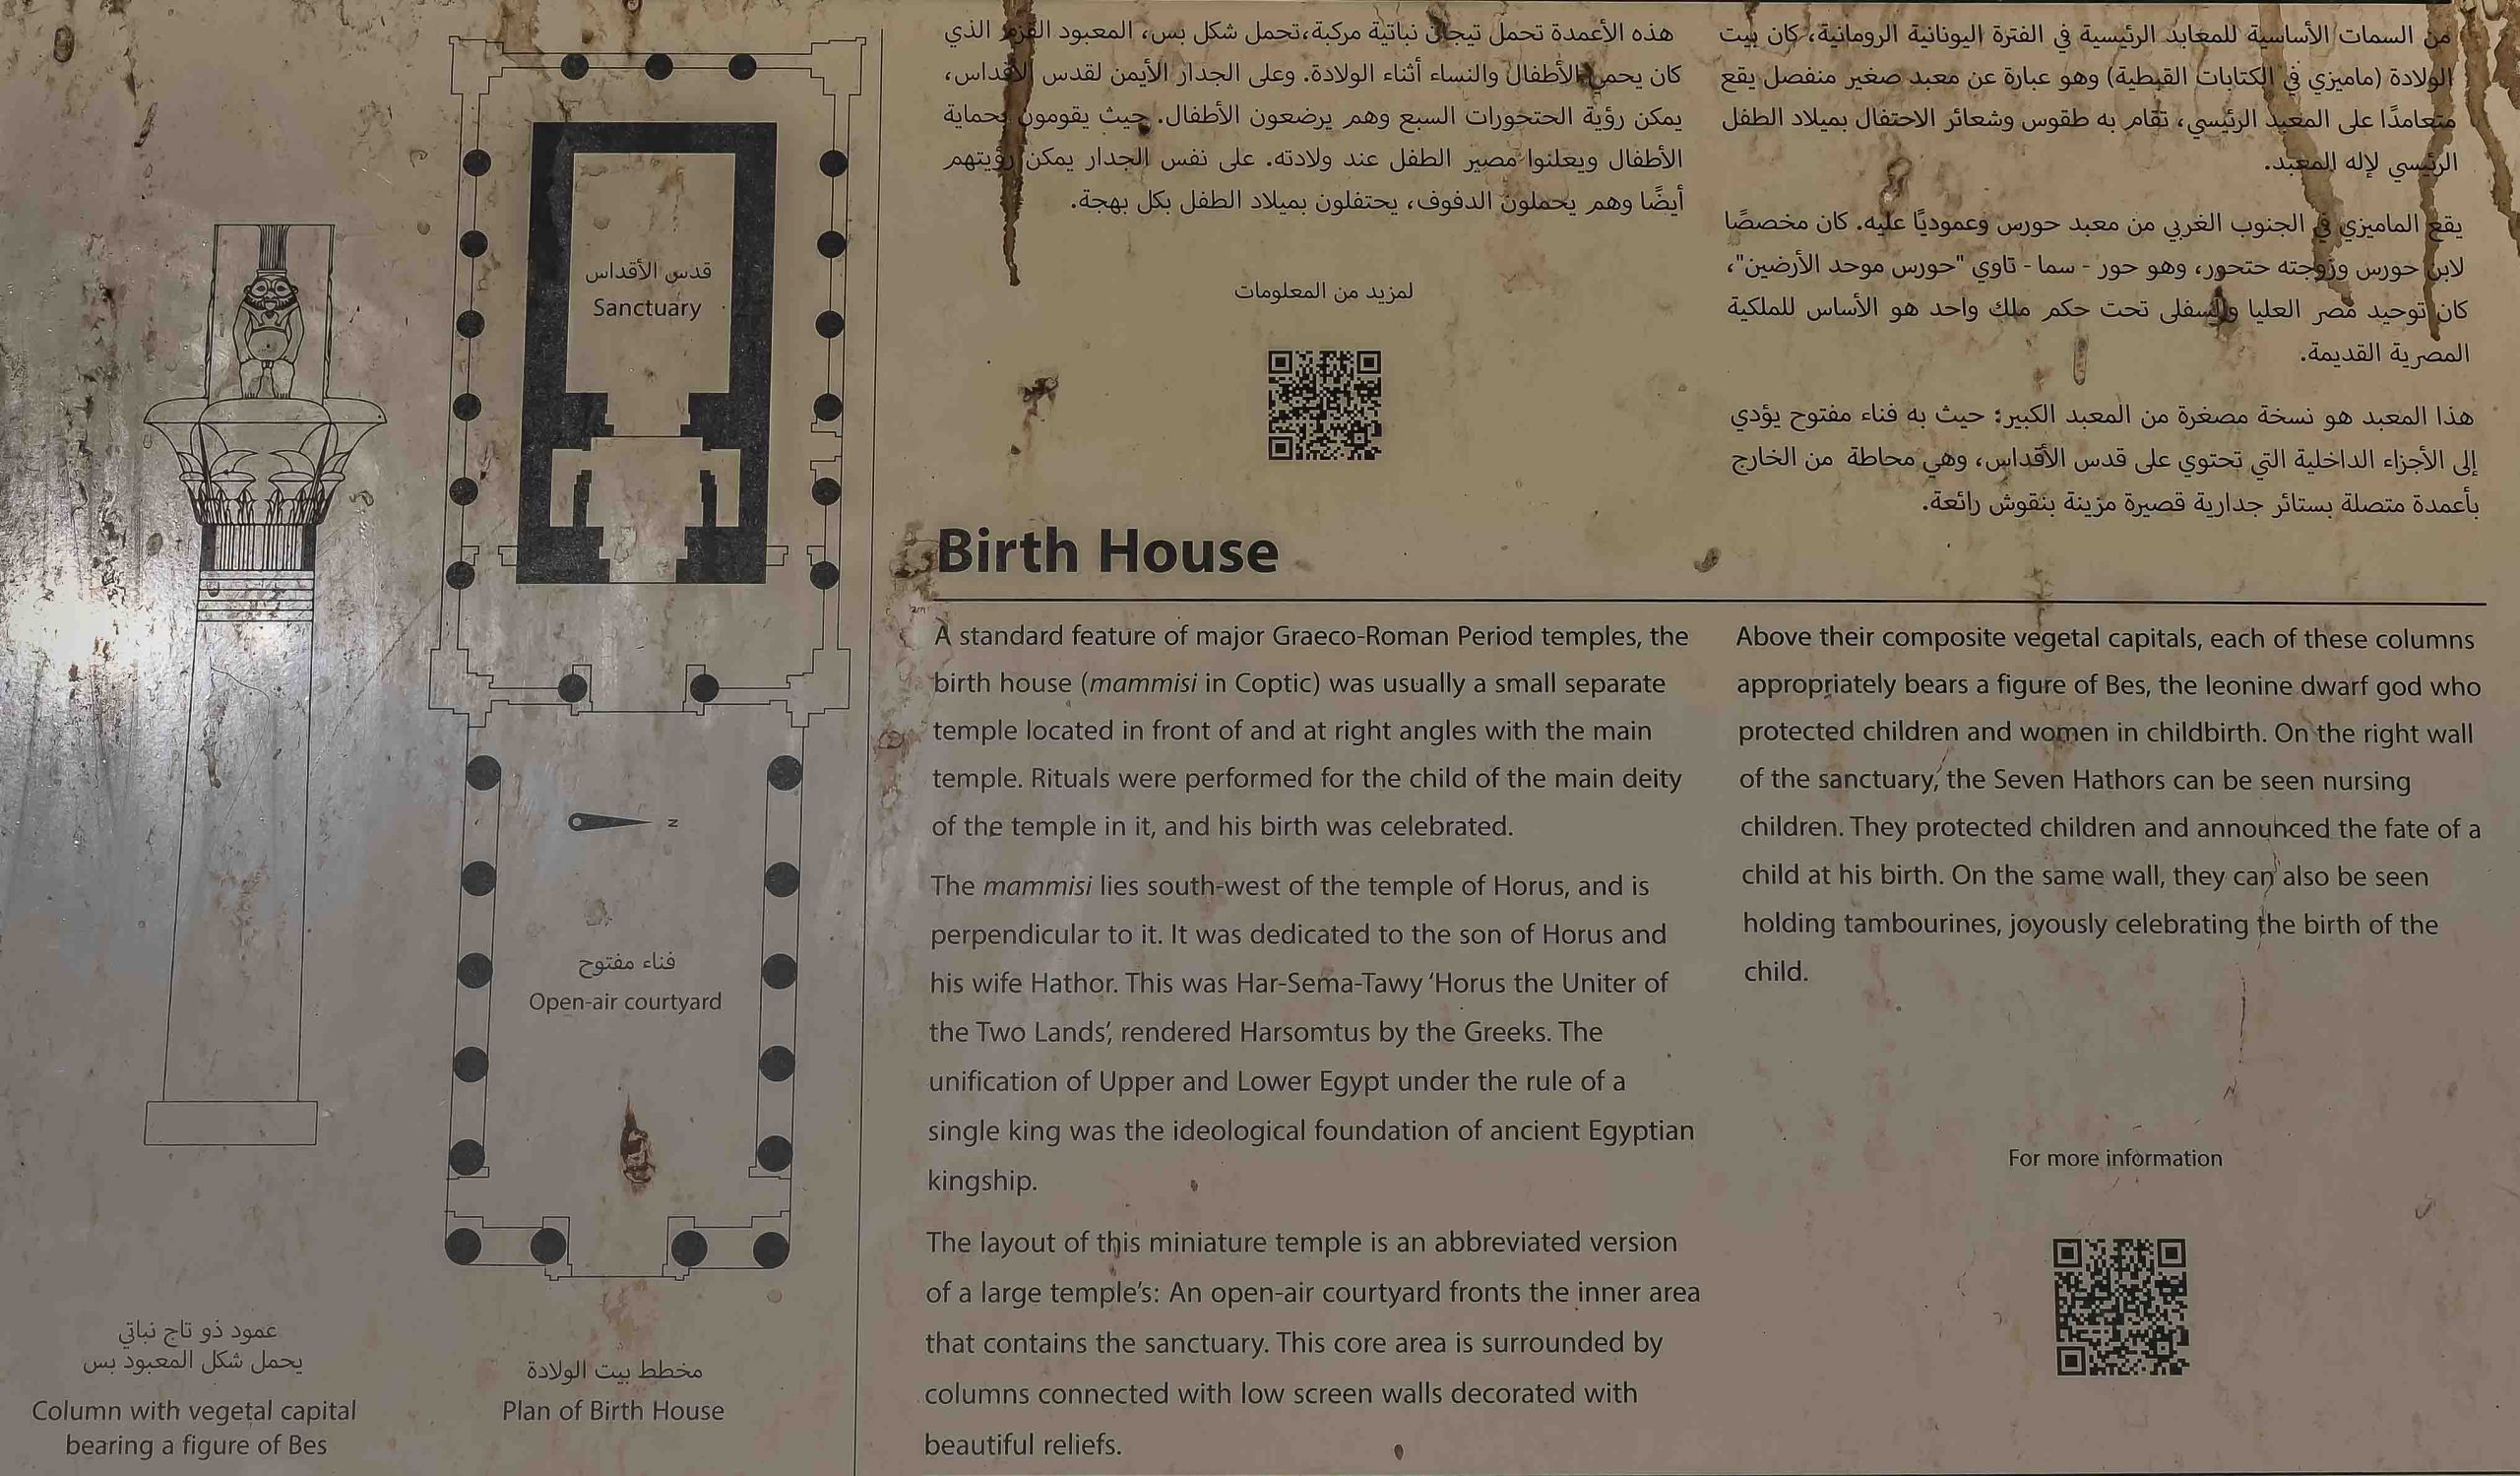 من السمات الأساسية للمعابد الرئيسية في الفترة اليونانية الرومانية، كان بيت
الولادة (ماميزي في الكتابات القبطية) وهو عبارة عن معبد صغير منفصل يقع
متعامدًا على المعبد الرئيسي، تقام به طقوس وشعائر الاحتفال بميلاد الطفل
الرئيسي لإله المعبد.
يقع الماميزي في الجنوب الغربي من معبد حورس وعموديًا عليه. كان مخصصًا
لابن حورس وزوجته حتحور، وهو حور - سما - تاوي "حورس موحد الأرضين"،
كان توحيد مصر العليا والسفلى تحت حكم ملك واحد هو الأساس للملكية
المصرية القديمة.
هذا المعبد هو نسخة مصغرة من المعبد الكبير؛ حيث به فناء مفتوح يؤدي
إلى الأجزاء الداخلية التي تحتوي على قدس الأقداس، وهي محاطة من الخارج
بأعمدة متصلة بستائر جدارية قصيرة مزينة بنقوش رائعة.
هذه الأعمدة تحمل تيجان نباتية مركبة،تحمل شكل بس، المعبود القزم الذي
كان يحمي الأطفال والنساء أثناء الولادة. وعلى الجدار الأيمن لقدس الأقداس،
يمكن رؤية الحتحورات السبع وهم يرضعون الأطفال. حيث يقومون بحماية
الأطفال ويعلنوا مصير الطفل عند ولادته. على نفس الجدار يمكن رؤيتهم
أيضًا وهم يحملون الدفوف، يحتفلون بميلاد الطفل بكل بهجة.
لمزيد من المعلومات
Birth House
A standard feature of major Graeco-Roman Period temples, the
birth house (mammisi in Coptic) was usually a small separate
temple located in front of and at right angles with the main
temple. Rituals were performed for the child of the main deity
of the temple in it, and his birth was celebrated.
The mammisi lies south-west of the temple of Horus, and is
perpendicular to it. It was dedicated to the son of Horus and
his wife Hathor. This was Har-Sema-Tawy ‘Horus the Uniter of
the Two Lands’, rendered Harsomtus by the Greeks. The
unification of Upper and Lower Egypt under the rule of a
single king was the ideological foundation of ancient Egyptian
kingship.
The layout of this miniature temple is an abbreviated version
of a large temple’s: An open-air courtyard fronts the inner area
that contains the sanctuary. This core area is surrounded by
columns connected with low screen walls decorated with
beautiful reliefs.
Above their composite vegetal capitals, each of these columns
appropriately bears a figure of Bes, the leonine dwarf god who
protected children and women in childbirth. On the right wall
of the sanctuary, the Seven Hathors can be seen nursing
children. They protected children and announced the fate of a
child at his birth. On the same wall, they can also be seen
holding tambourines, joyously celebrating the birth of the
child.
For more information
قدس الأقداس
Sanctuary
N
فناء مفتوح
Open-air courtyard
مخطط بيت الولادة
Plan of Birth House
عمود ذو تاج نباتي
يحمل شكل المعبود بس
Column with vegetal capital
bearing a figure of Bes